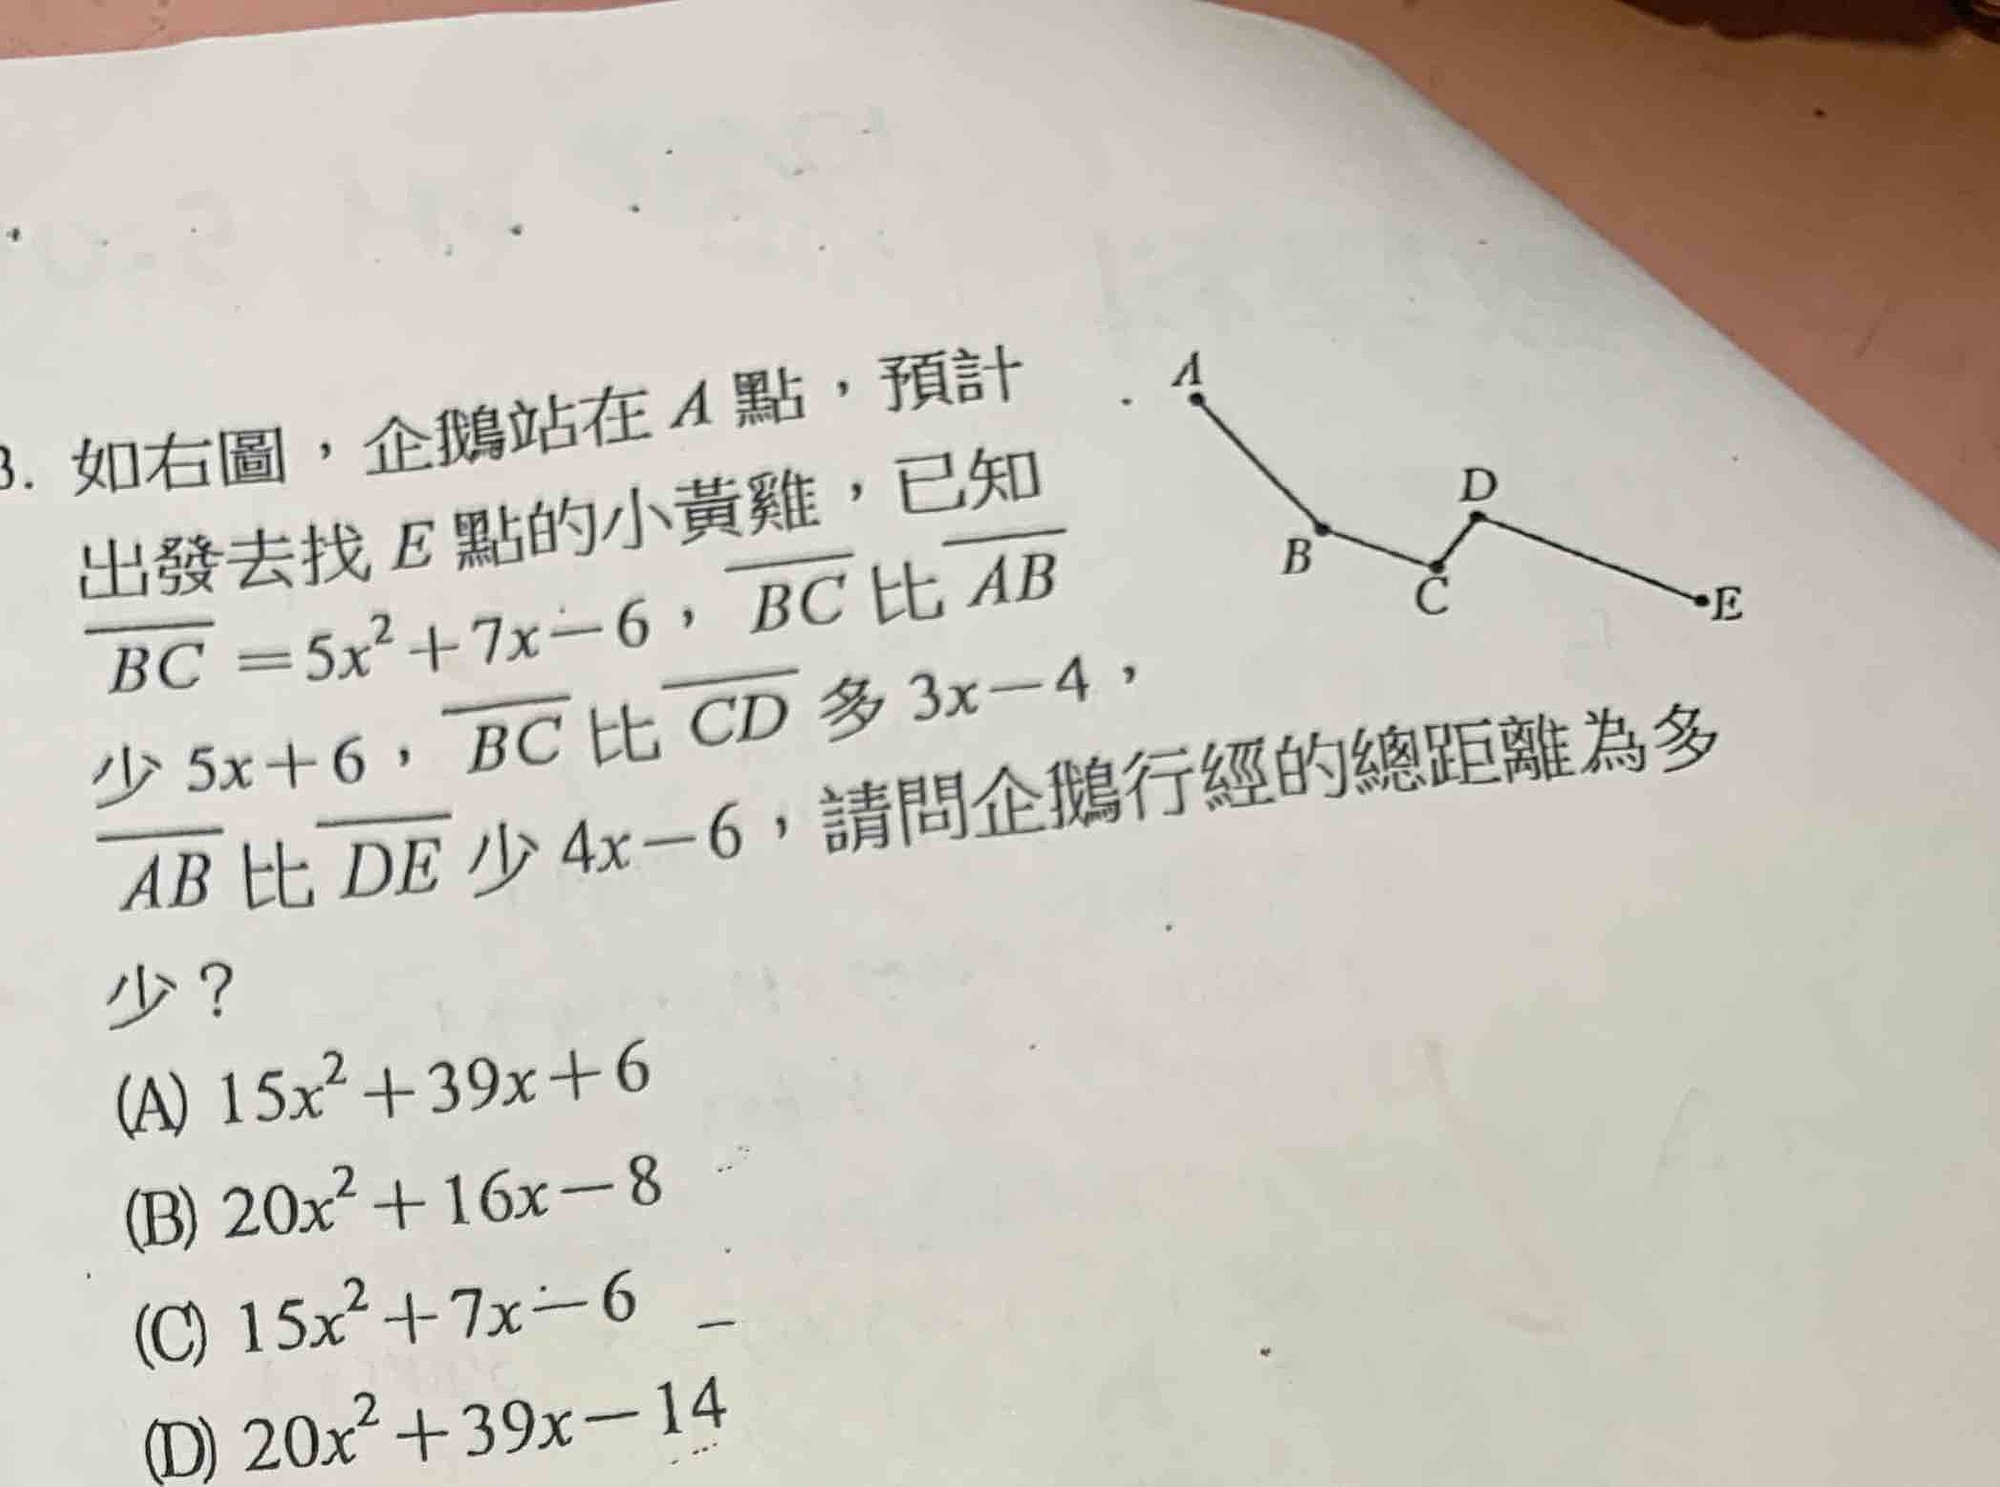 3. 如右圖，企鵝站在 A 點，預計
出發去找 E 點的小黃雞，已知
BC＝5x²＋7x－6，BC 比 AB
少 5x＋6，BC 比 CD 多 3x－4，
AB 比 DE 少 4x－6，請問企鵝行經的總距離為多
少？
(A) 15x²＋39x＋6
(B) 20x²＋16x－8
(C) 15x²＋7x－6
(D) 20x²＋39x－14
A
B
C
D
E